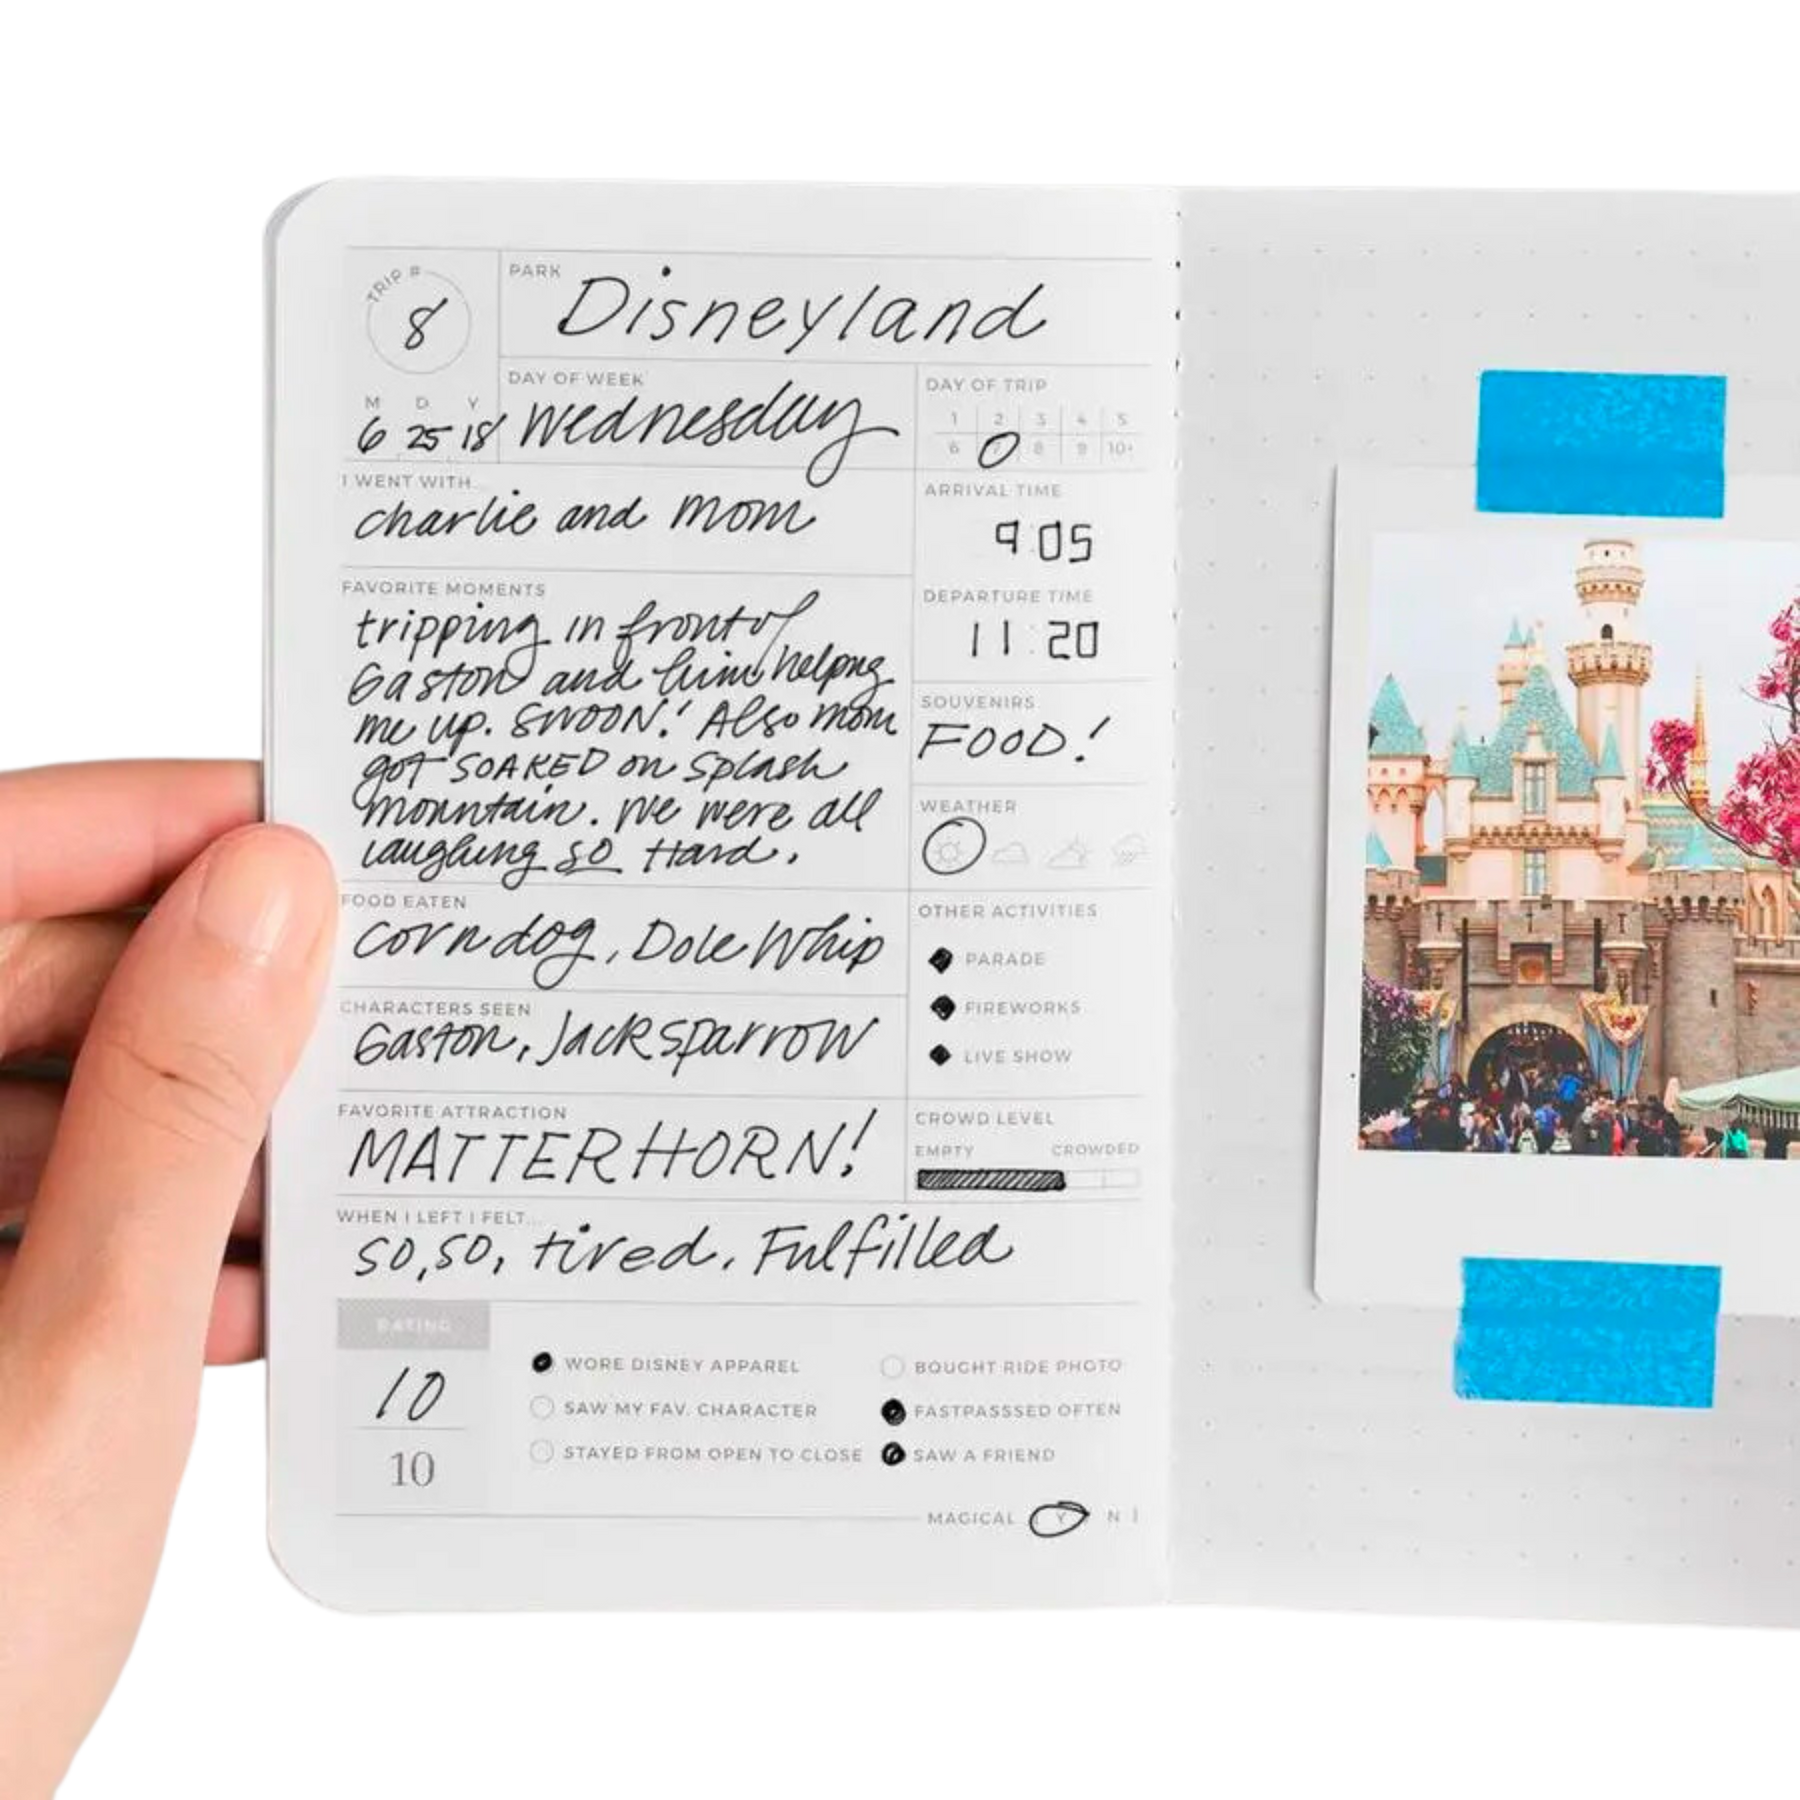 TRIP #
8
PARK
Disneyland
M D Y
6 25 18
DAY OF WEEK
Wednesday
DAY OF TRIP
1 2 3 4 5
6 7 8 9 10+
I WENT WITH...
charlie and mom
ARRIVAL TIME
9:05
DEPARTURE TIME
11:20
FAVORITE MOMENTS
tripping in front of
Gaston and him helping
me up. SWOON! Also mom
got SOAKED on splash
mountain. We were all
laughing SO Hard.
SOUVENIRS
FOOD!
WEATHER
FOOD EATEN
corn dog, Dole Whip
OTHER ACTIVITIES
PARADE
FIREWORKS
LIVE SHOW
CHARACTERS SEEN
Gaston, Jack sparrow
FAVORITE ATTRACTION
MATTERHORN!
CROWD LEVEL
EMPTY CROWDED
WHEN I LEFT I FELT...
SO, SO, tired. Fulfilled
RATING
10
10
WORE DISNEY APPAREL
SAW MY FAV. CHARACTER
STAYED FROM OPEN TO CLOSE
BOUGHT RIDE PHOTO
FASTPASSSED OFTEN
SAW A FRIEND
MAGICAL Y N